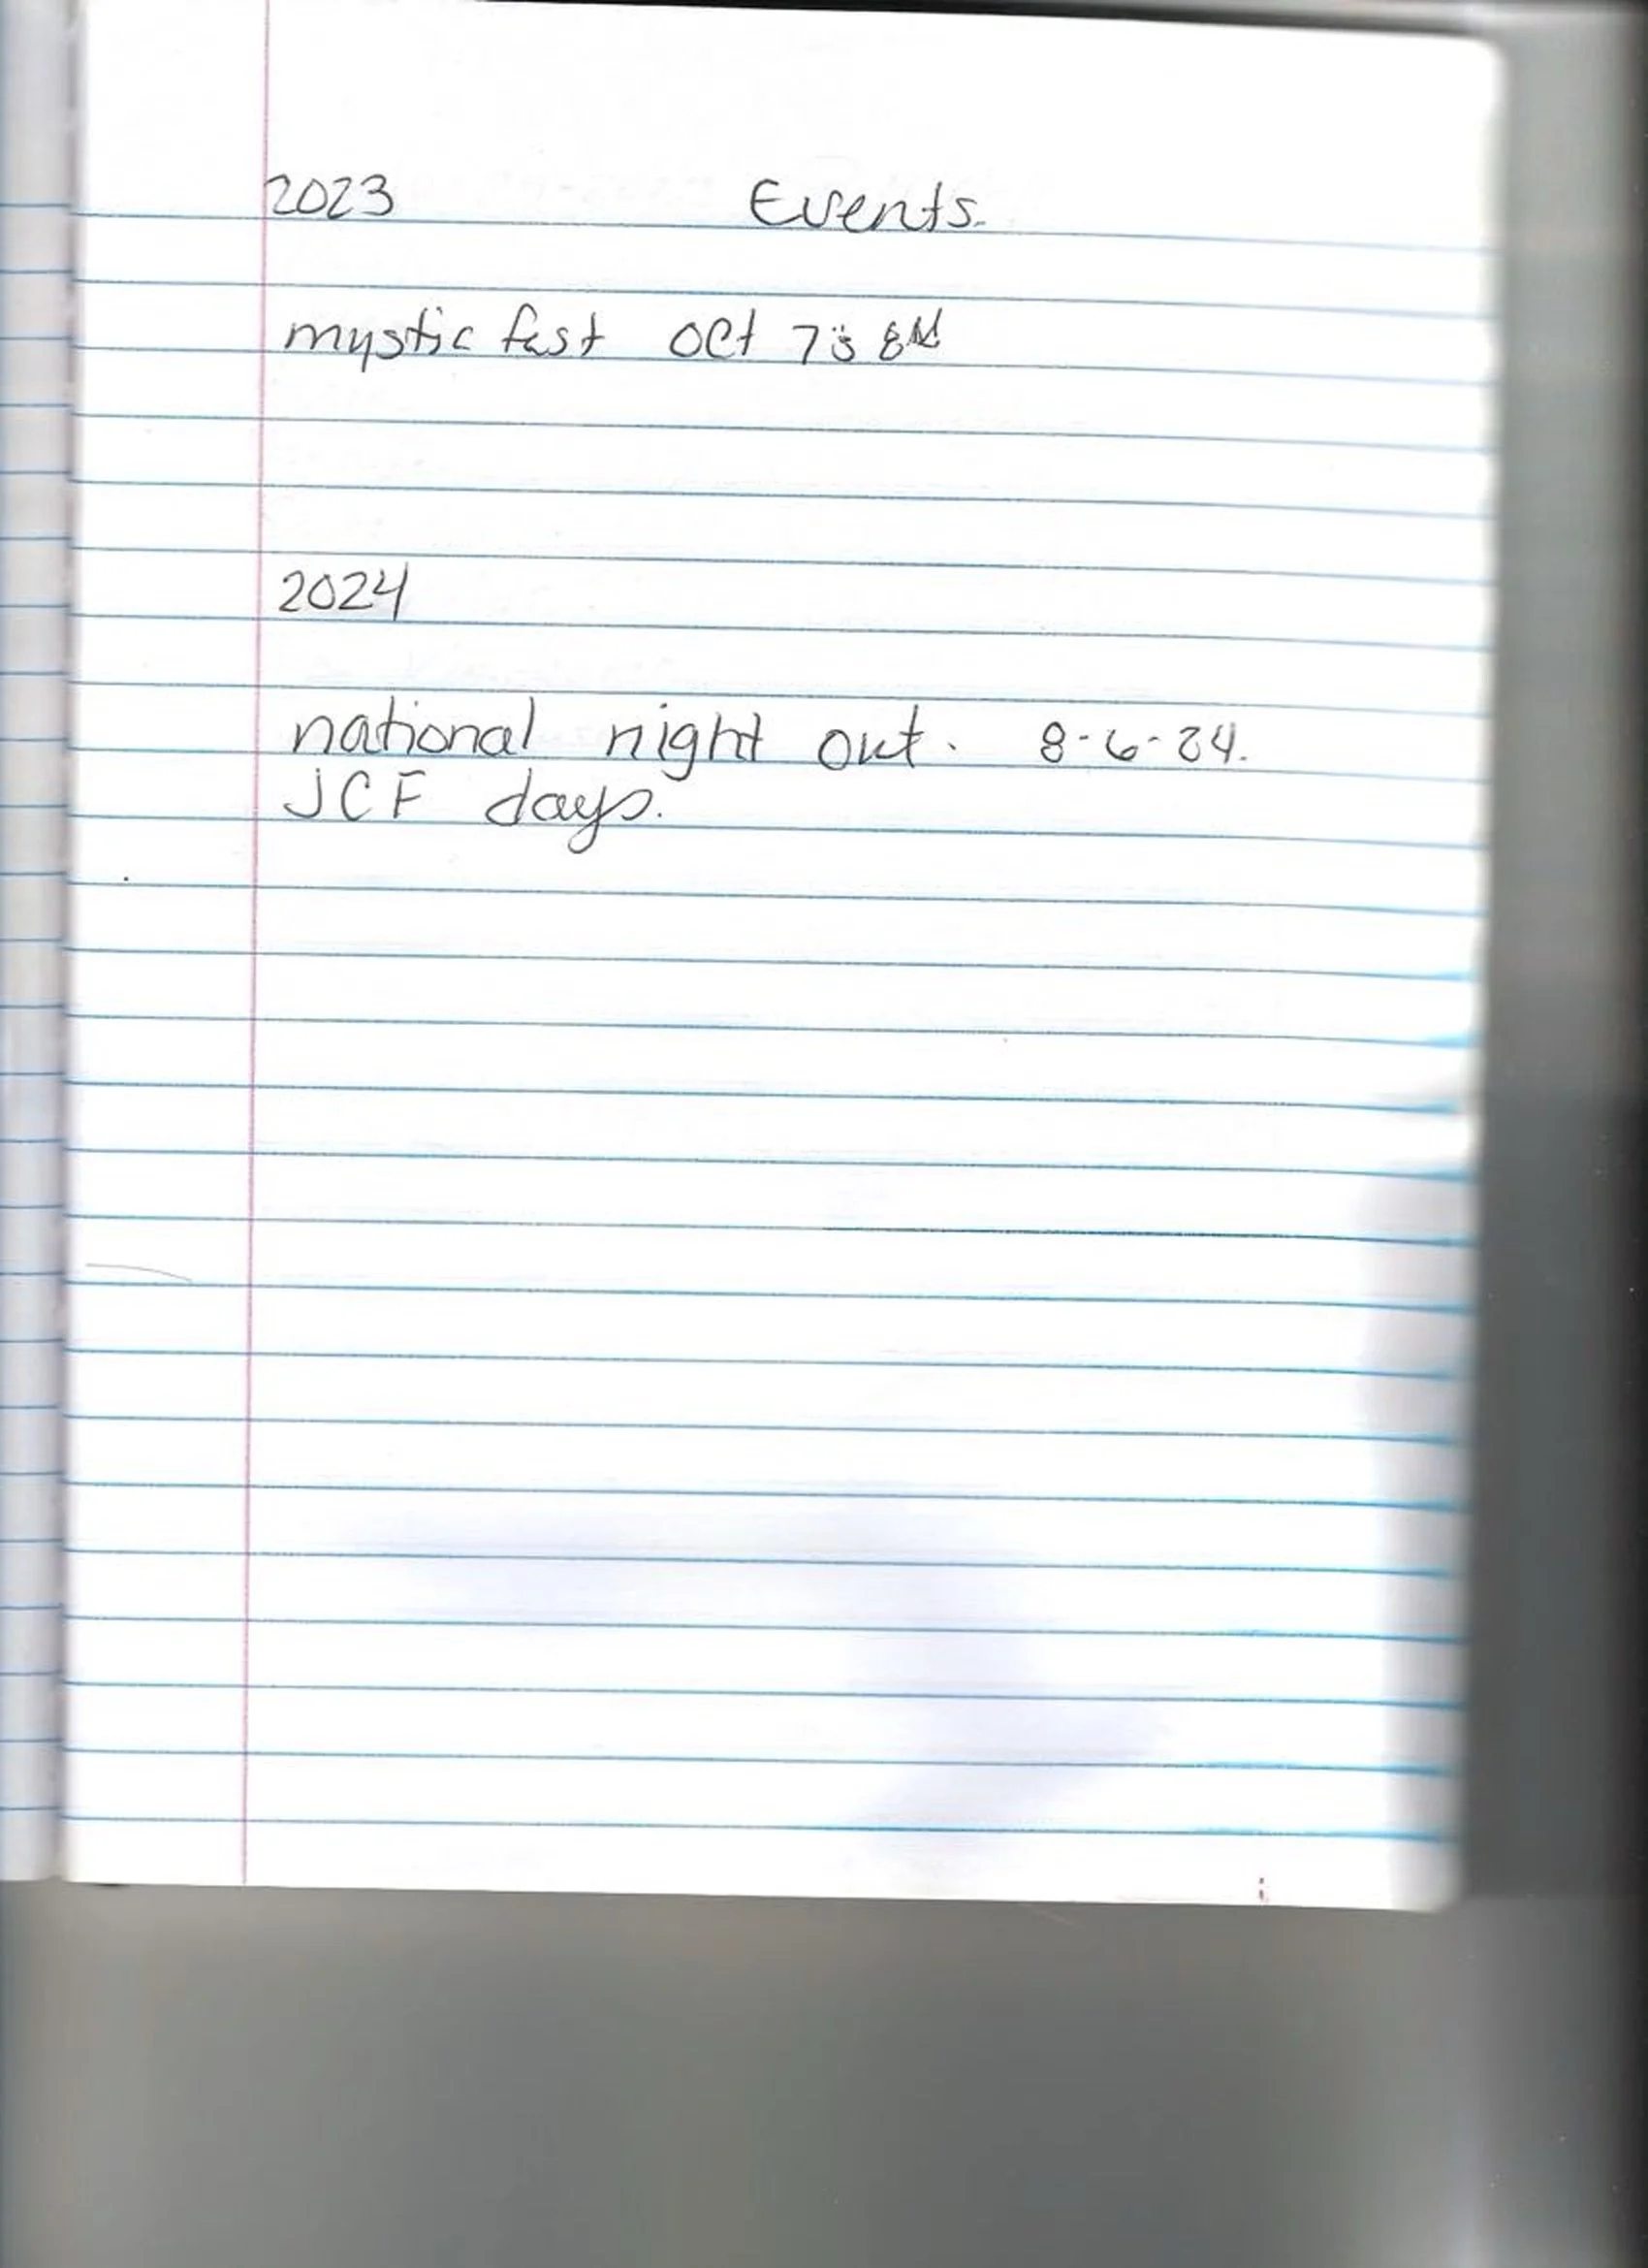 2023 Events.
mystic fest Oct 7 & 8
2024
national night out. 8-6-24.
JCF days.